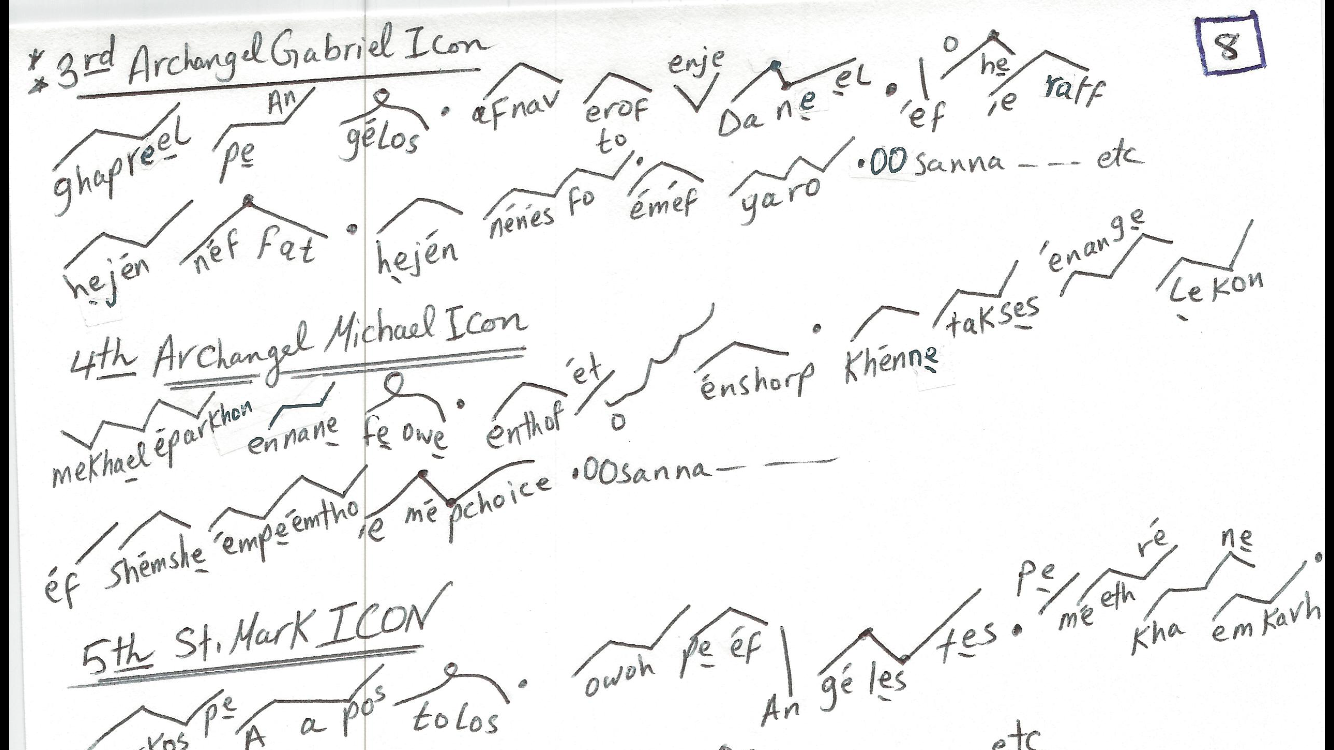 8
* * 3rd Archangel Gabriel Icon
ghapreel pe An gélos . afnav erof enje Daneel . 'éf o he 'ie raff
to
hején néf fat . hején nénés fo . éméf yaro . OOsanna --- etc
4th Archangel Michael Icon
meKhael éparKhon ennane fe owe . énthof 'ét o énshorp . Khénne taKses 'énange LeKon
éf shémshe 'émpeémtho 'ie mé pchoice . OOsanna — —
5th St. Mark ICON
pe A a pos tolos . owoh pe éf An gé les tes . pe mé eth ré Kha ne em Kavh .
etc